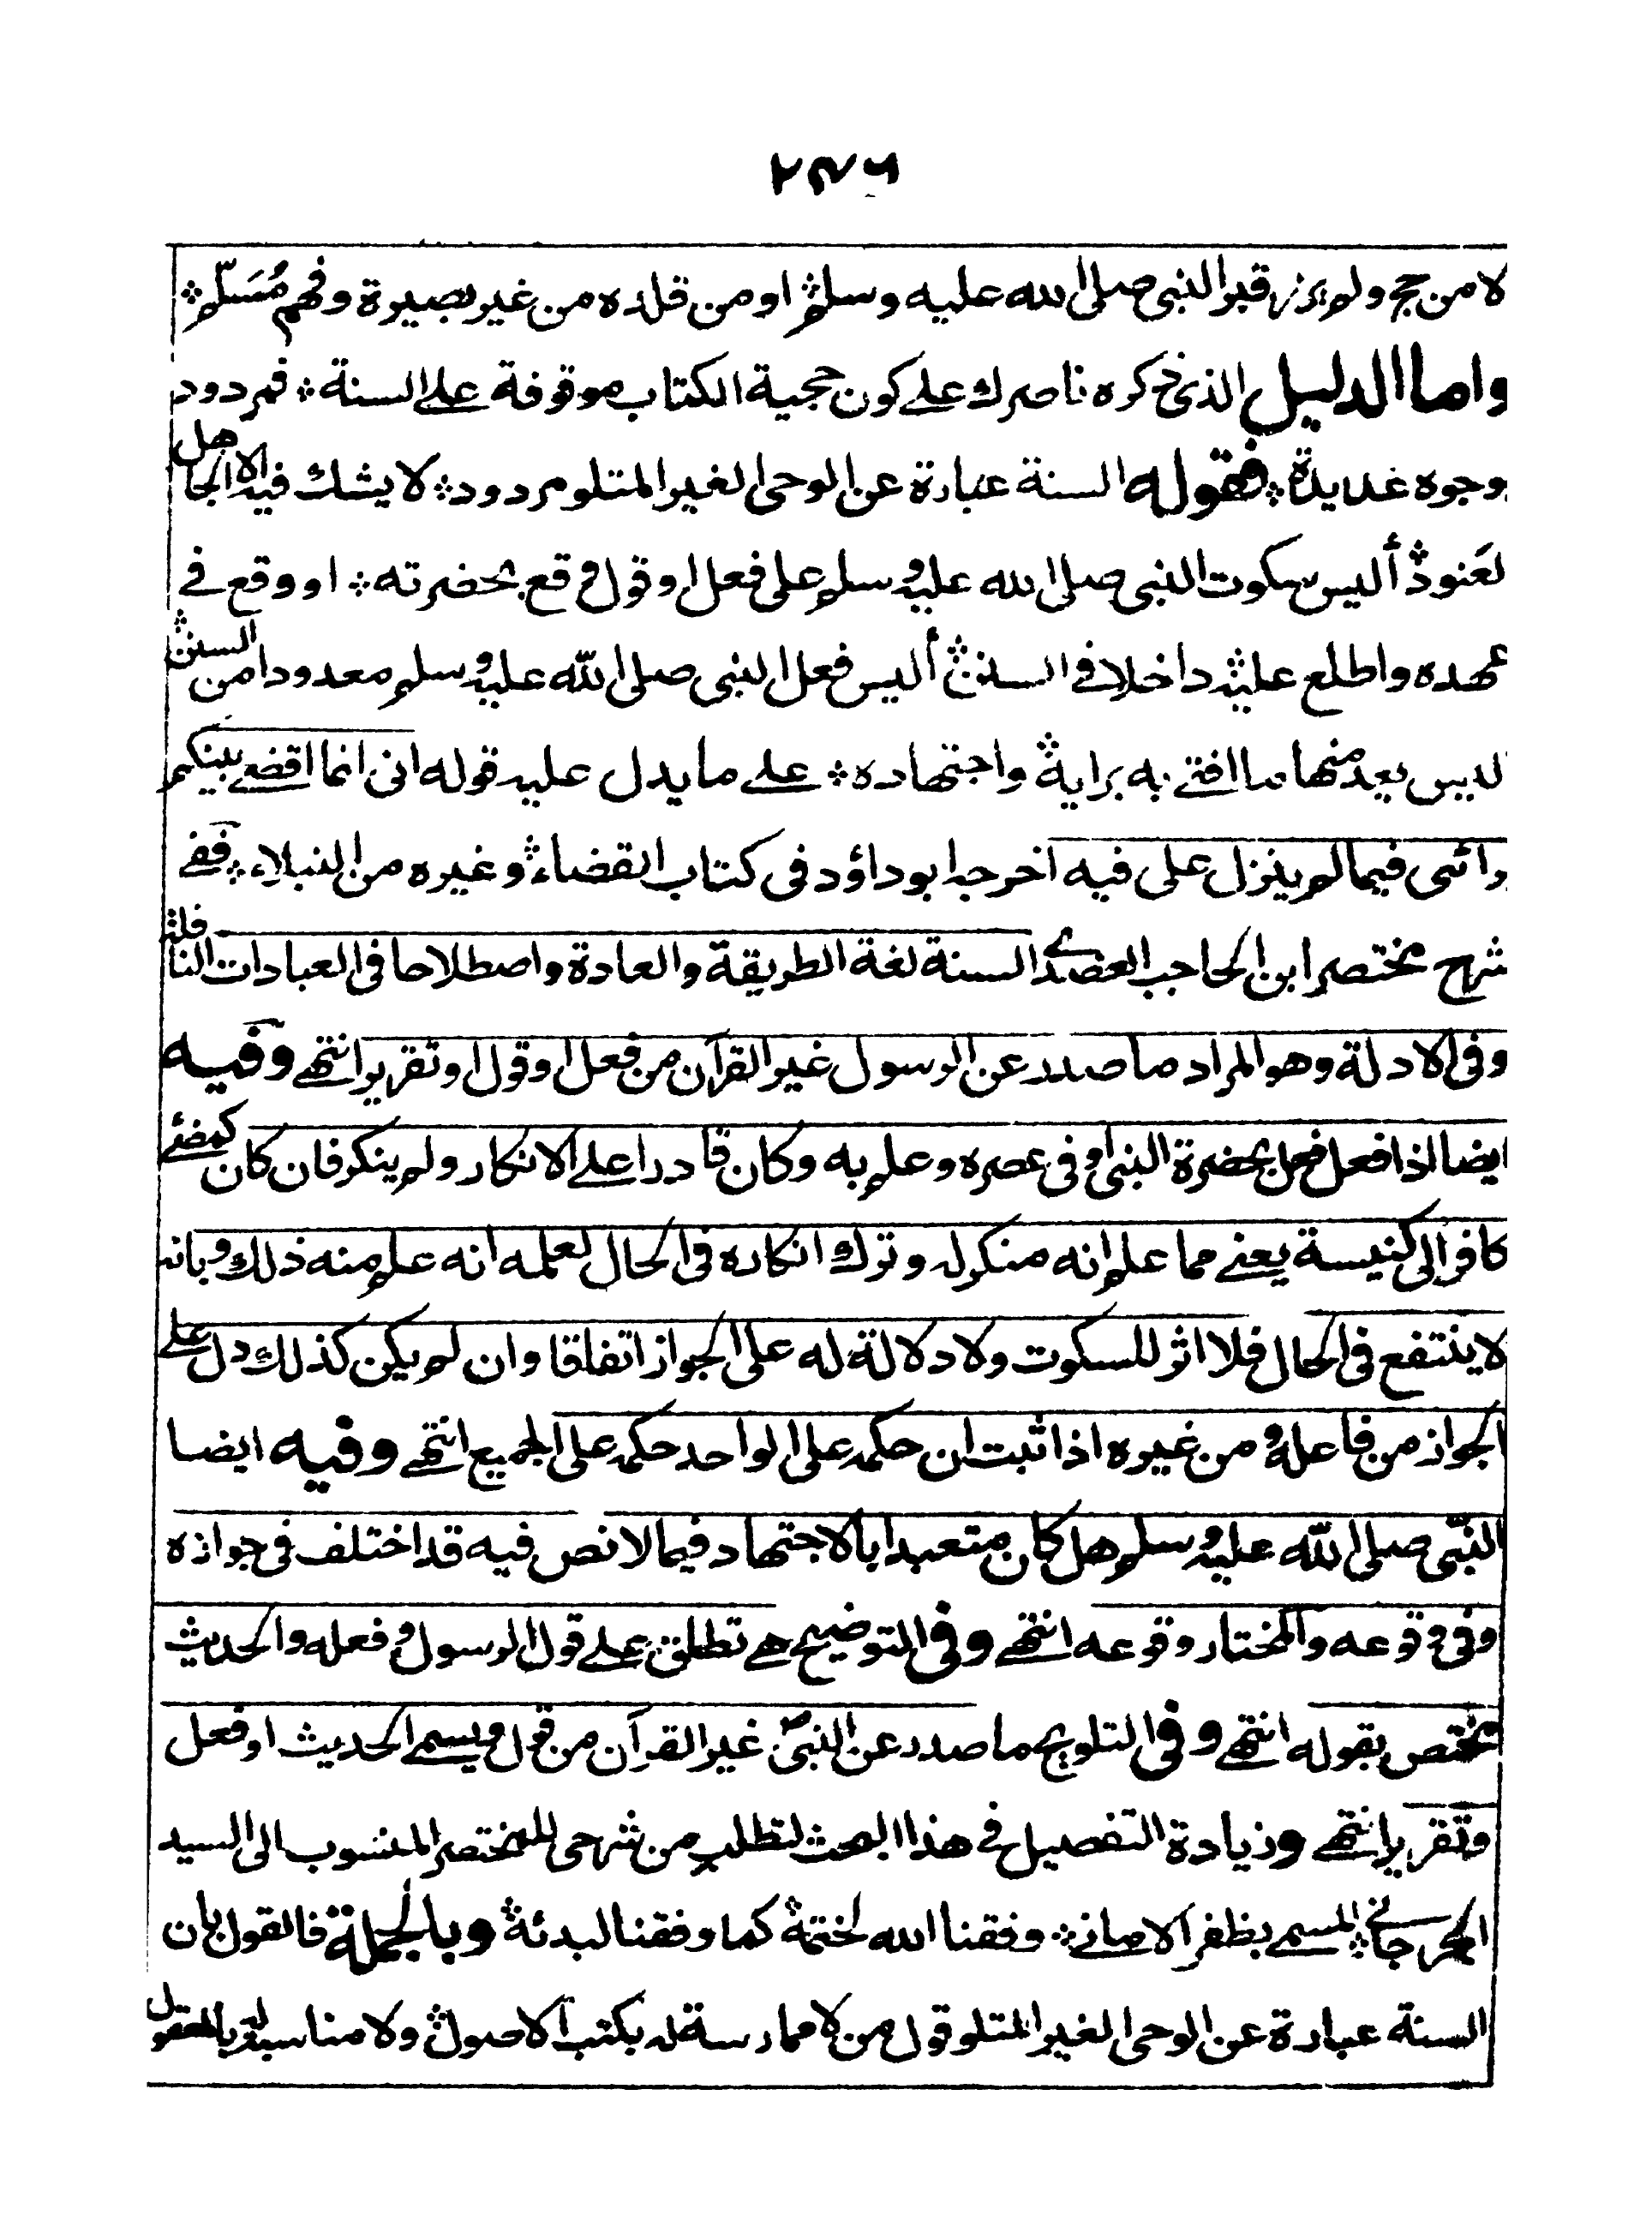 ٢٧٦
لا من حج ولم يزر قبر النبي صلى الله عليه وسلم او من قلده من غير بصيرة وفهم مُسَلّم
واما الدليل الذي ذكره ناصرك على كون حجية الكتاب موقوفة على السنة فمردود
بوجوه عديدة فقوله السنة عبارة عن الوحي الغير المتلو مردود لا يشك فيه الا الجاهل
لعَنود أليس سكوت النبي صلى الله عليه وسلم على فعل او قول وقع بحضرته او وقع في
عهده واطلع عليه داخلا في السنن أليس فعل النبي صلى الله عليه وسلم معدودا من السنن
ليس يعد منها ما افتى به برايه واجتهاده على ما يدل عليه قوله اني انما اقضي بينكم
برائي فيما لم ينزل علي فيه اخرجه ابو داؤد في كتاب القضاء وغيره من النبلاء ففي
شرح مختصر ابن الحاجب العضدي السنة لغة الطريقة والعادة واصطلاحا في العبادات النافلة
وفي الادلة وهو المراد ما صدر عن الرسول غير القرآن من فعل او قول او تقرير انتهى وفيه
ايضا اذا فعل فعل بحضرة النبي او في عصره وعلم به وكان قادرا على الانكار ولم ينكر فان كان كمضي
كافر الى كنيسة يعني مما علم انه منكر له وترك انكاره في الحال لعلمه انه علم منه ذلك وبانه
لا ينتفع في الحال فلا اثر للسكوت ولا دلالة له على الجواز اتفاقا وان لم يكن كذلك دل على
الجواز من فاعله ومن غيره اذا ثبت ان حكمه على الواحد حكمه على الجميع انتهى وفيه ايضا
النبي صلى الله عليه وسلم هل كان متعبدا بالاجتهاد فيما لا نص فيه قد اختلف في جوازه
وفي وقوعه والمختار وقوعه انتهى وفي التوضيح هي تطلق على قول الرسول وفعله والحديث
مختص بقوله انتهى وفي التلويح ما صدر عن النبي ؐ غير القرآن من قول ويسمى الحديث او فعل
وتقرير انتهى وزيادة التفصيل في هذا البحث لتطلب من شرحي للمختصر المنسوب الى السيد
الجرجاني المسمى بظفر الاماني وفقنا الله لختمه كما وفقنا لبدئه وبالجملة فالقول بان
السنة عبارة عن الوحي الغير المتلو قول من لا ممارسة له بكتب الاصول ولا مناسبة له بالمعقول